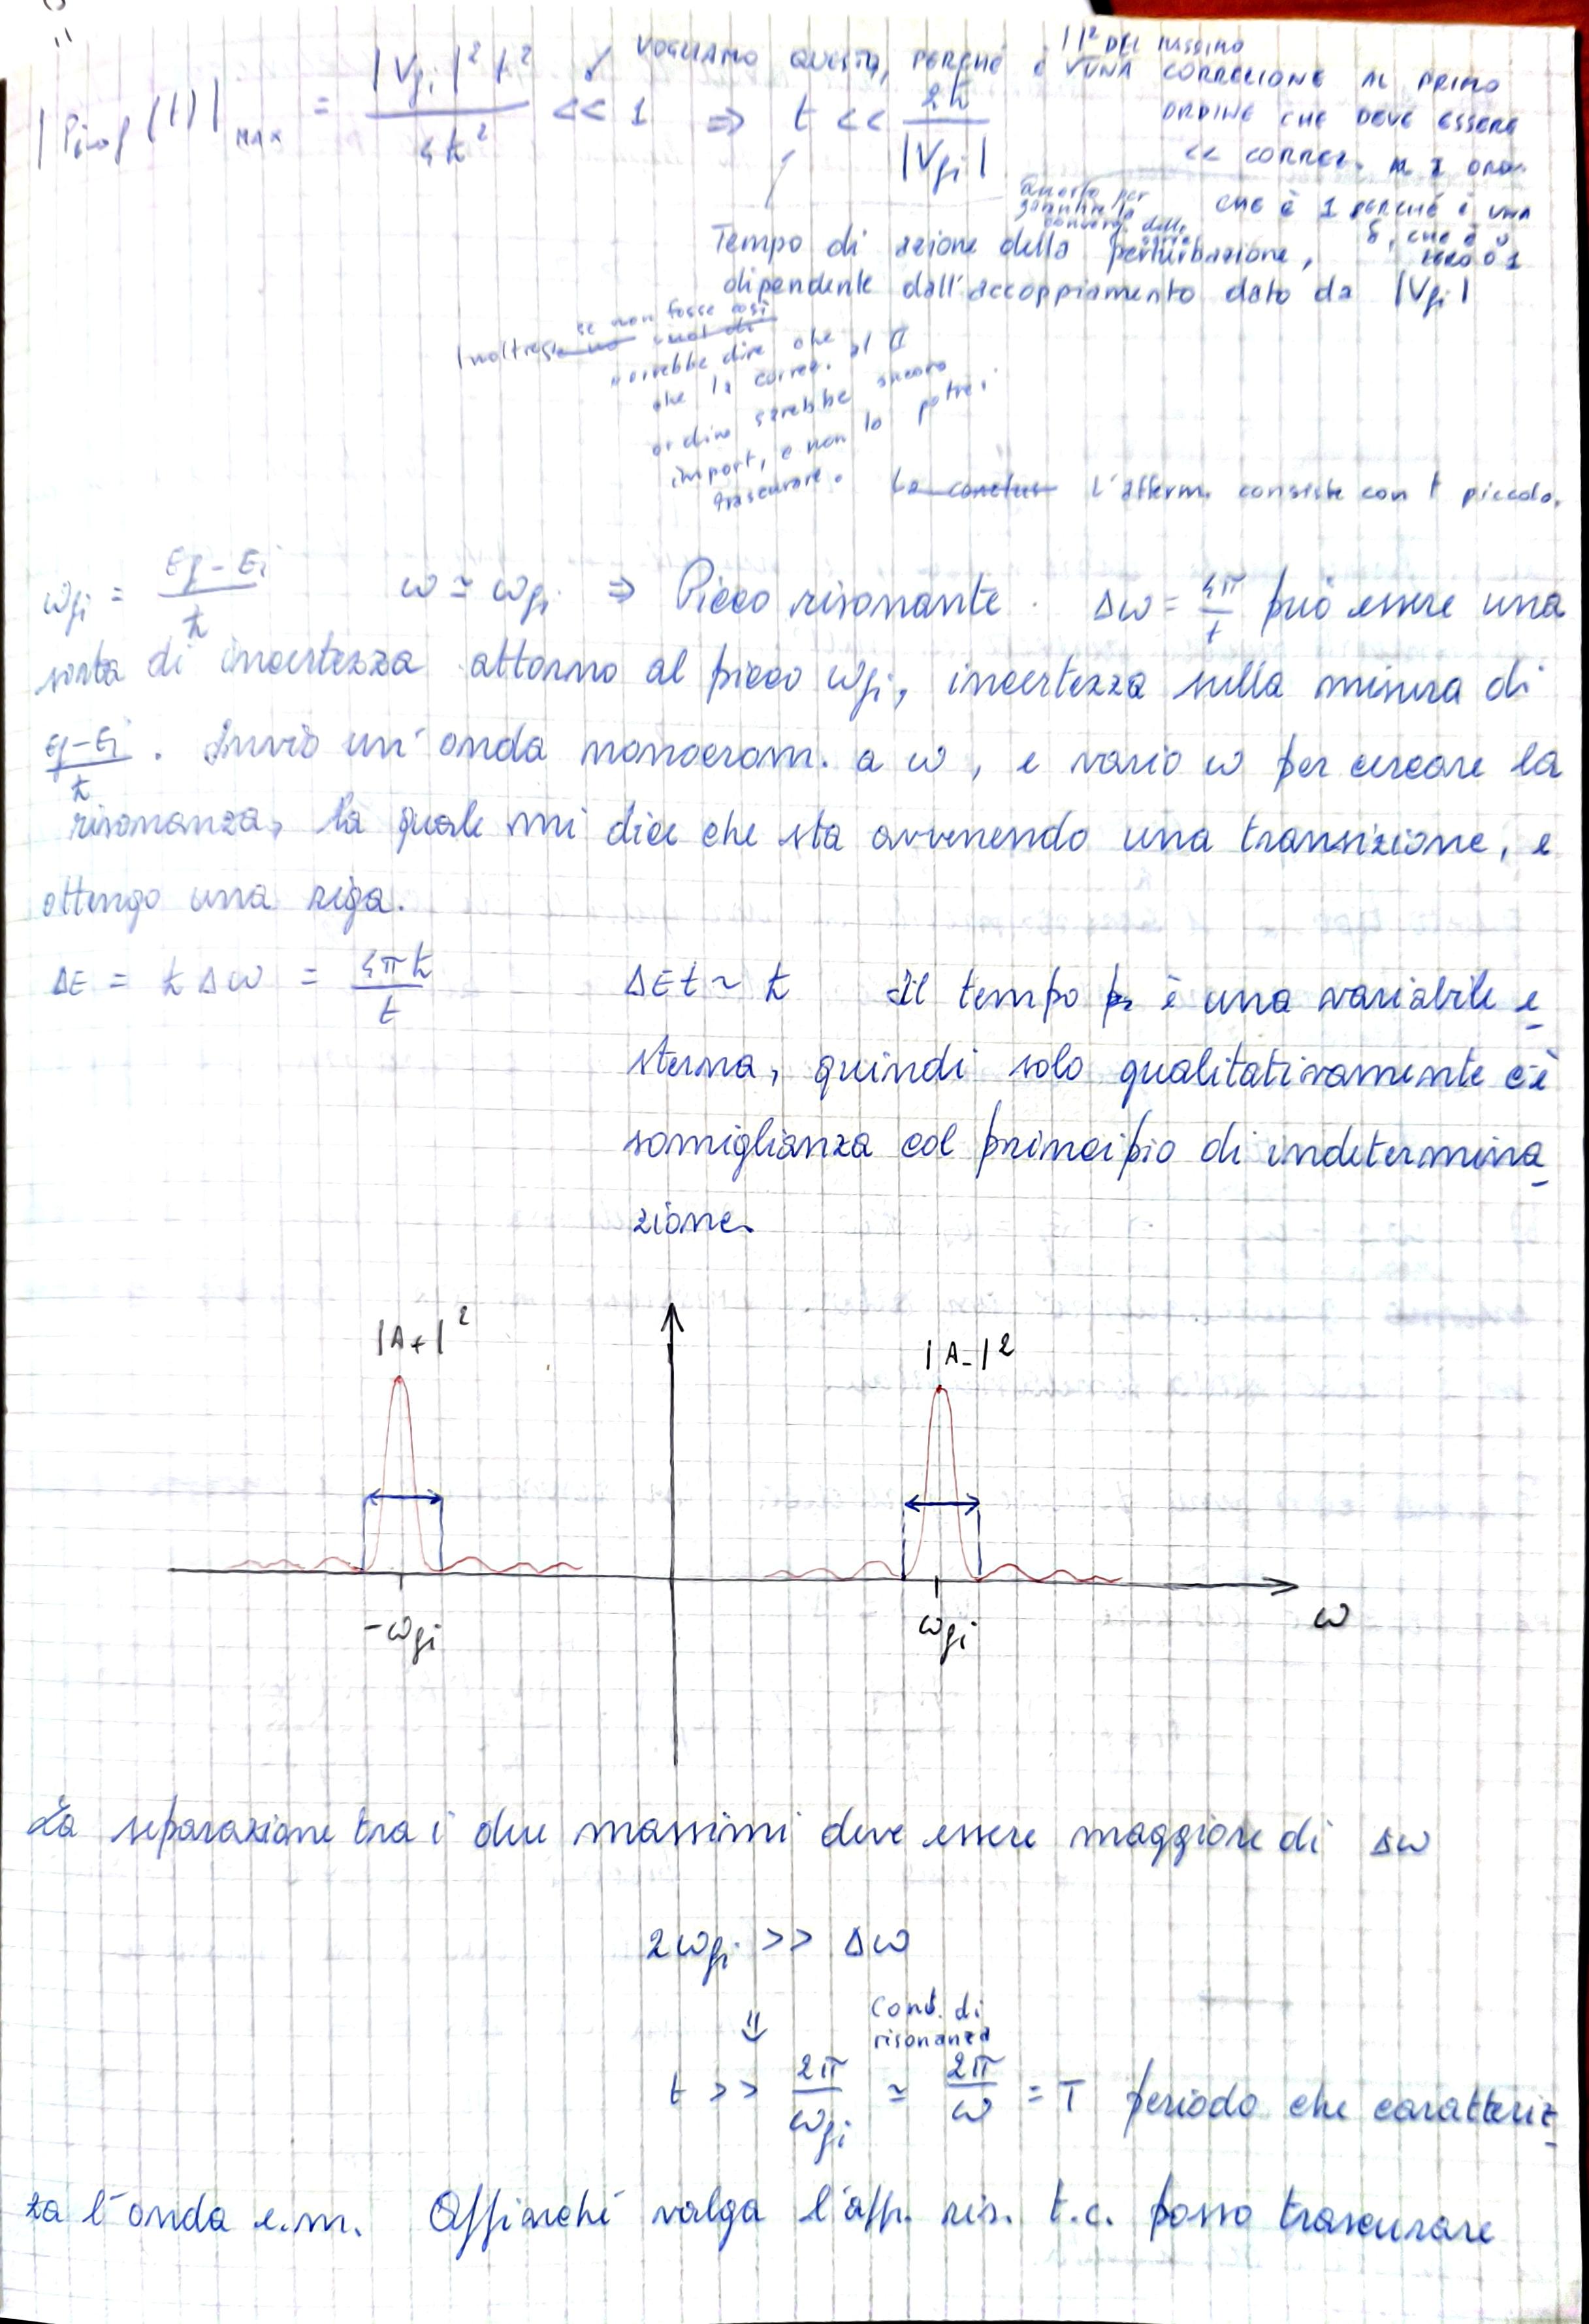 |P_{i→f}(t)|_{MAX} = |V_{fi}|² t² / 4ħ² << 1 ⇒ t << 2ħ / |V_{fi}|
VOGLIAMO QUESTO, PERCHÉ È UNA CORREZIONE AL PRIMO
| |² DEL MASSIMO
ORDINE CHE DEVE ESSERE
<< CORREZ. AL I ORD.
CHE È 1 PERCHÉ È UNA
δ, CHE È O
ZERO O 1
Questo per
garantire la
converg. della
Tempo di azione della perturbazione,
dipendente dall'accoppiamento dato da |V_{fi}|
Inoltre, se non fosse così
vorrebbe dire che
che la correz. al II
ordine sarebbe ancora
import, e non lo potrei
trascurare. La L'afferm. consiste con t piccolo.
ω_{fi} = E_f - E_i / ħ ω ≃ ω_{fi} ⇒ Picco risonante. Δω = 4π/t può essere una
sorta di incertezza attorno al picco ω_{fi}, incertezza sulla misura di
E_f - E_i / ħ. Invio un'onda monocrom. a ω, e vario ω per cercare la
risonanza, la quale mi dice che sta avvenendo una transizione, e
ottengo una riga.
ΔE = ħ Δω = 4πħ / t ΔE t ~ ħ Il tempo è una variabile e
sterna, quindi solo qualitativamente c'è
somiglianza col principio di indetermina
zione.
|A+|² |A-|²
-ω_{fi} ω_{fi} ω
La separazione tra i due massimi deve essere maggiore di Δω
2ω_{fi} >> Δω
⇓ Cond. di
risonanza
t >> 2π/ω_{fi} ≃ 2π/ω = T periodo che caratteriz
za l'onda e.m. Affinché valga l'appr. ris. t.c. posso trascurare